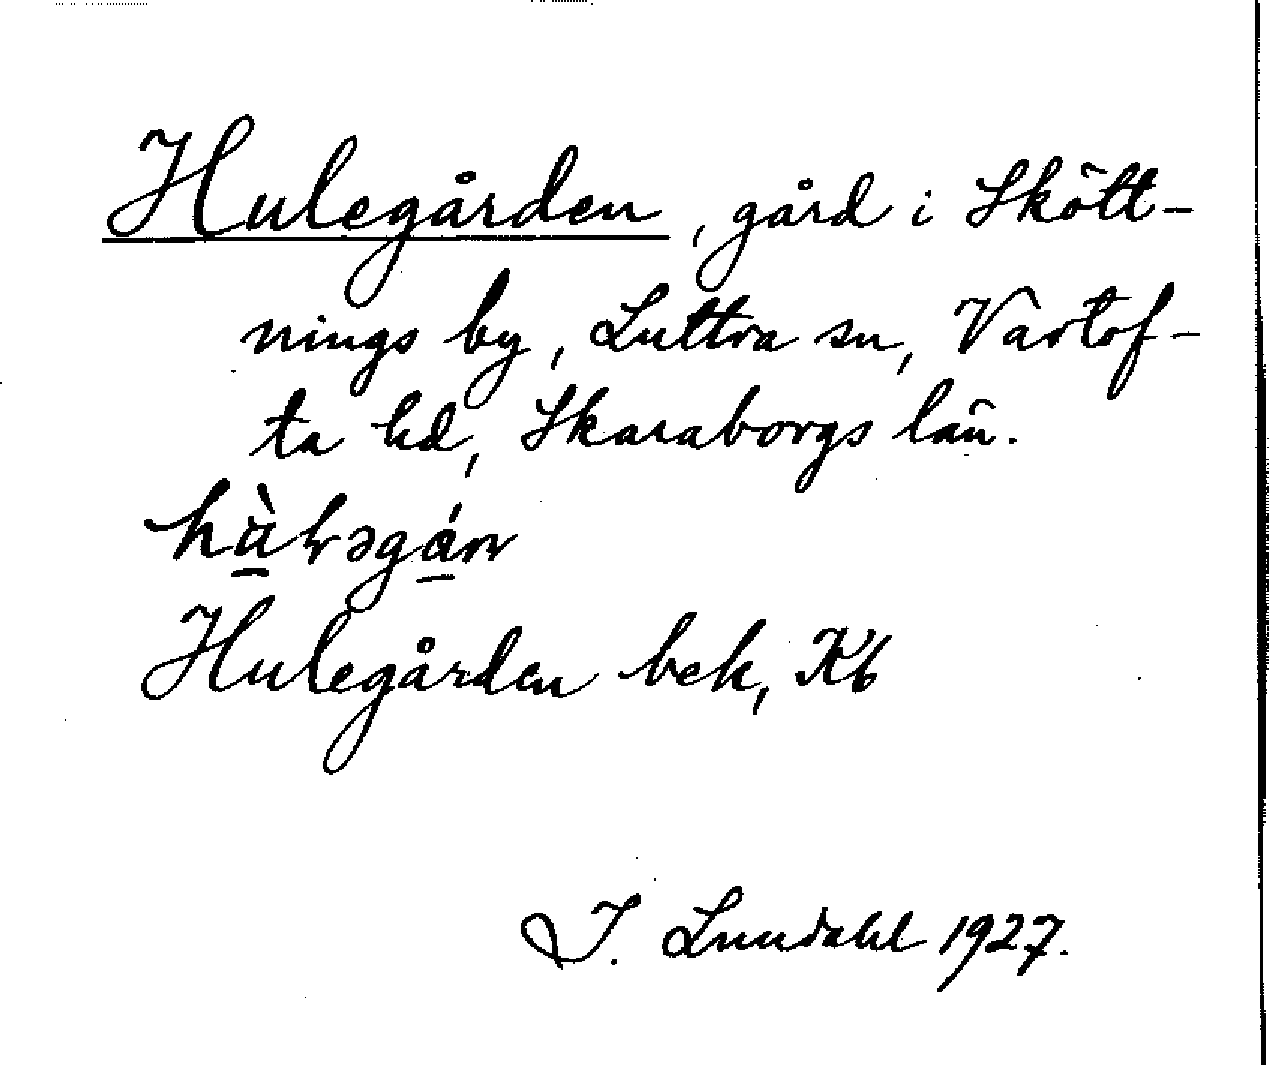 Hulegården, gård i Skött-
nings by, Luttra sn, Vartof-
ta hd, Skaraborgs län.
Hulegården bek, Kb
I. Lundahl 1927.